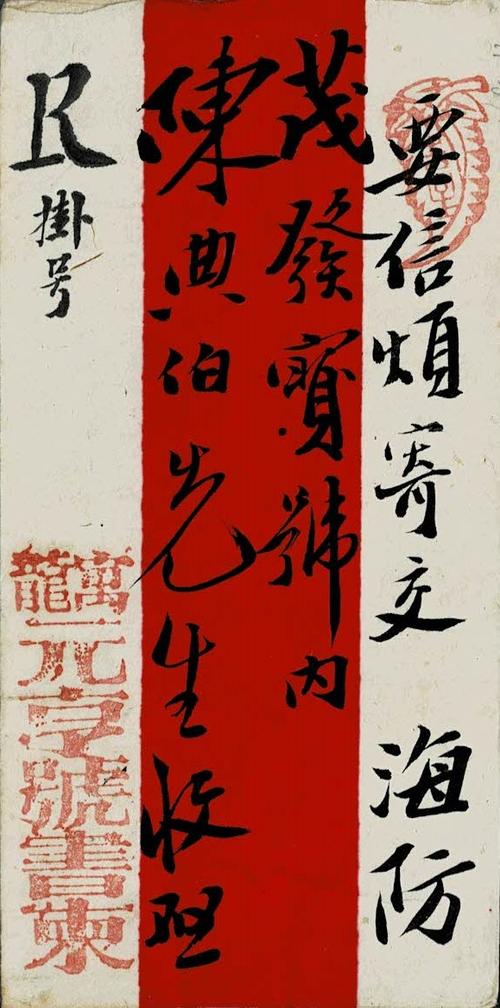 要信煩寄交 海防
茂發寶號内
陳典伯先生收照
R 掛号
元亨號書柬